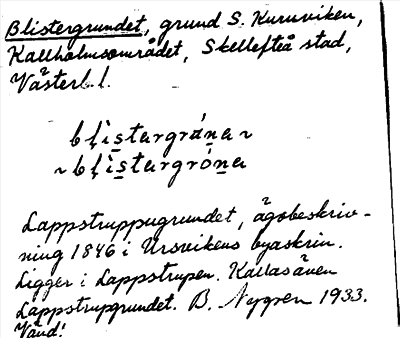 Blistergrundet, grund S. Kuruviken,
Kallholmsområdet, Skellefteå stad,
Västerb. l.
bḷìstərgrán̠a ~
~ bḷìstərgrón̠a
Lappstruppugrundet, ägobeskriv-
ning 1846 i Ursvikens byaskrin.
Ligger i Lappstrupen. Kallas även
Lappstrupgrundet. B. Nygren 1933.
Vänd!